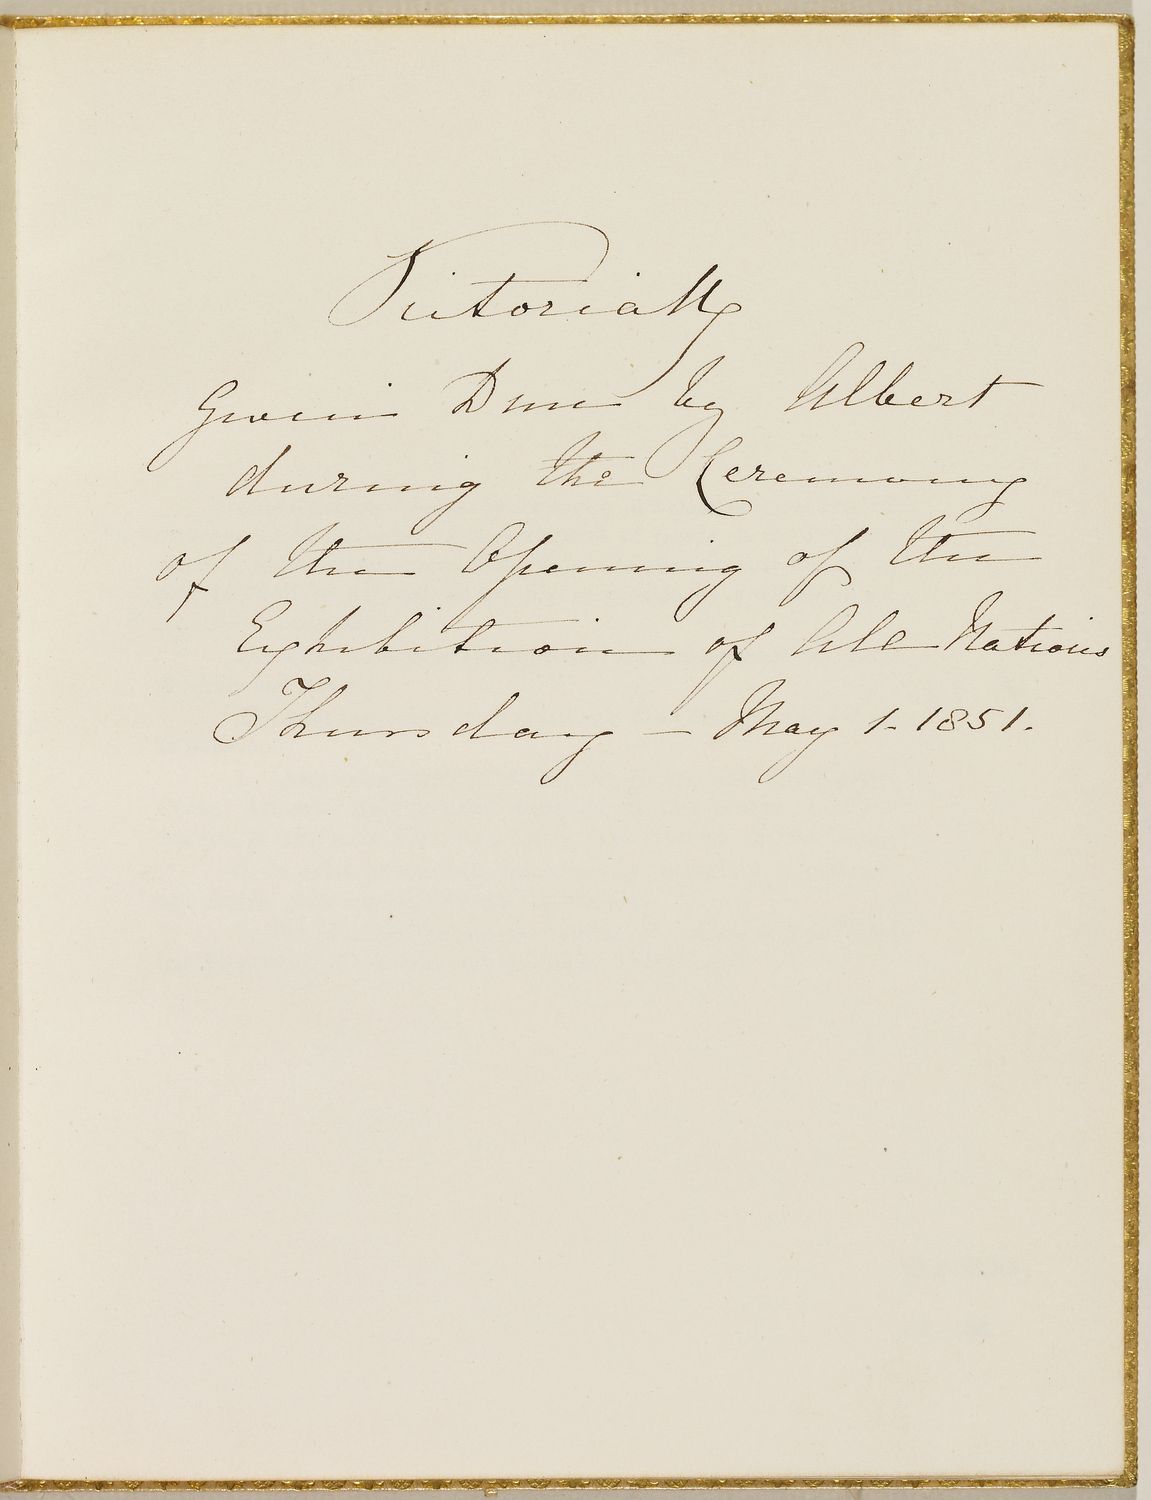 Victoria R
Given Me by Albert
during the Ceremony
of the Opening of the
Exhibition of All Nations
Thursday – May 1. 1851.